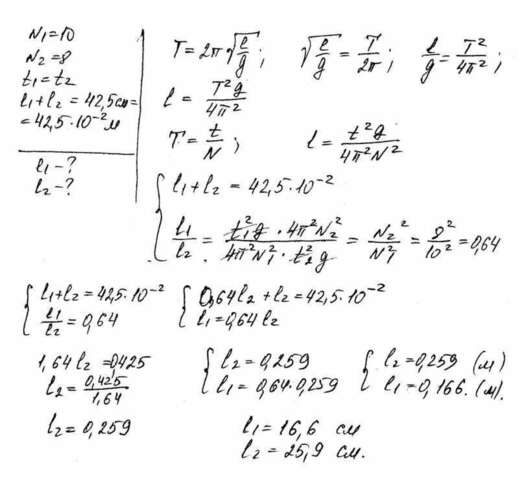 N₁=10
N₂=8
t₁=t₂
l₁+l₂=42,5см=
=42,5·10⁻²м
l₁-?
l₂-?
T=2π√(l/g); √(l/g)=T/2π; l/g=T²/4π²;
l=T²g/4π²
T=t/N; l=t²g/4π²N²
{l₁+l₂=42,5·10⁻²
l₁/l₂=t₁²g·4π²N₂²/4π²N₁²·t₂²g=N₂²/N₁²=8²/10²=0,64
{l₁+l₂=42,5·10⁻² {0,64l₂+l₂=42,5·10⁻²
l₁/l₂=0,64 l₁=0,64l₂
1,64l₂=0,425 {l₂=0,259 {l₂=0,259 (м)
l₂=0,425/1,64 l₁=0,64·0,259 l₁=0,166. (м).
l₂=0,259 l₁=16,6 см
l₂=25,9 см.